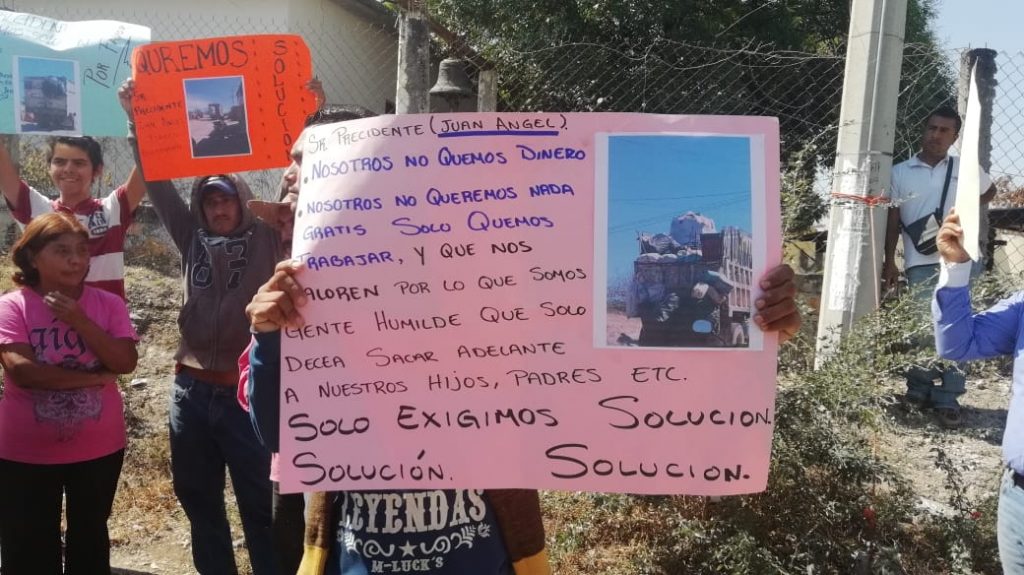 POR
QUREMOS
SOLUCI
SR
PRECIDENTE
SR. PRECIDENTE (JUAN ANGEL).
. NOSOTROS NO QUEMOS DINERO
. NOSOTROS NO QUEREMOS NADA
GRATIS SOLO QUEMOS
TRABAJAR, Y QUE NOS
ALOREN POR LO QUE SOMOS
GENTE HUMILDE QUE SOLO
DECEA SACAR ADELANTE
A NUESTROS HIJOS, PADRES ETC.
SOLO EXIGIMOS SOLUCION.
SOLUCIÓN. SOLUCION.
87
LEYENDAS
M-LUCK'S